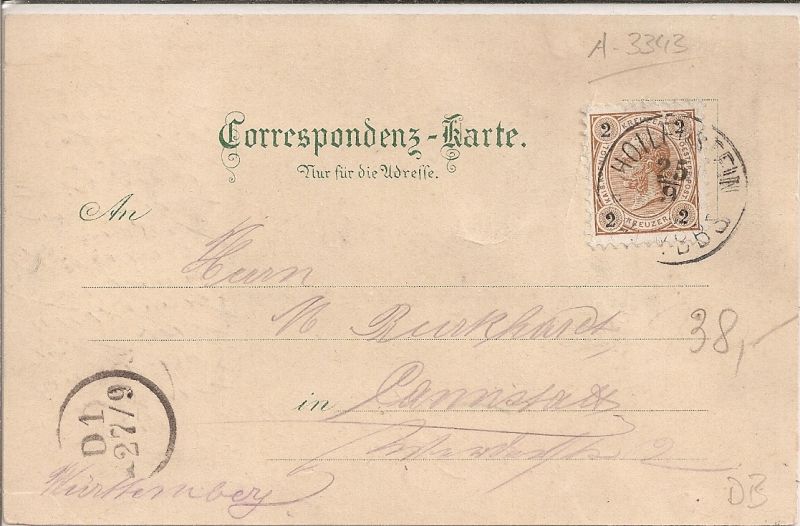 A-3343
Correspondenz-Karte.
Nur für die Adresse.
2 KREUZER 2
2 KREUZER 2
HOLLENSTEIN
25
9
YBBS
An
Herrn
Burkhardt,
38,-
in Cannstatt
2
D1
27/9
Württemberg
DB